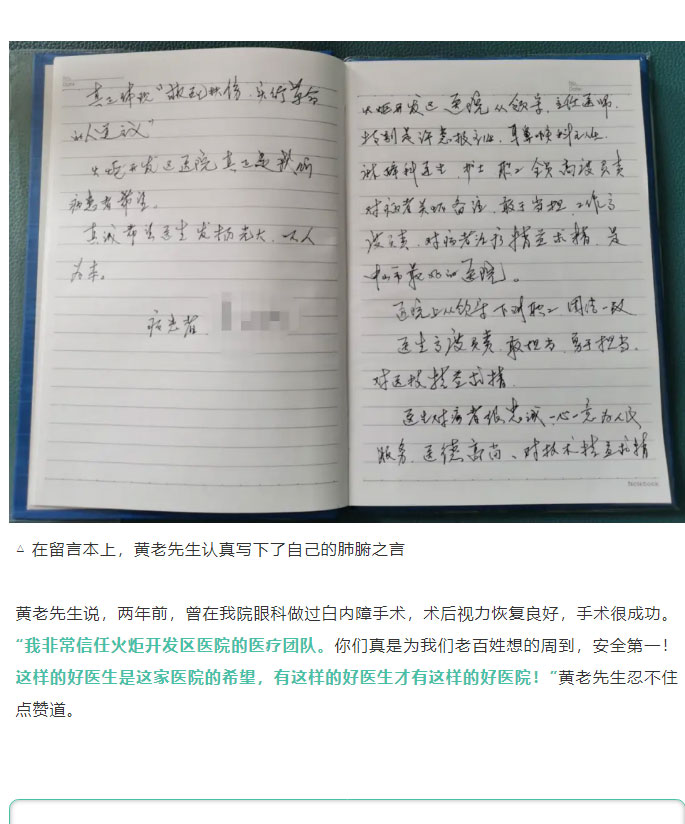 No.
Date
真正体现“救死扶伤，实行革命
的人道主义”
火炬开发区医院真正是我们
病患者希望。
真诚希望医生发扬光大，以人
为本。
病患者
Date
火炬开发区医院从领导，主任医师，
特别是许志报主任，
科医生，护士职工全员高度负责
对病者关怀备注，敢于当担，工作高
度认真，对病者治疗精益求精，是
中山市最好的医院。
医院上从领导下到职工团结一致
医生高度负责，敢担当，勇于担当，
对医技精益求精
医生对病者很忠诚，一心一意为人民
服务，医德高尚、对技术精益求精
Notebook
△ 在留言本上，黄老先生认真写下了自己的肺腑之言
黄老先生说，两年前，曾在我院眼科做过白内障手术，术后视力恢复良好，手术很成功。
“我非常信任火炬开发区医院的医疗团队。你们真是为我们老百姓想的周到，安全第一！
这样的好医生是这家医院的希望，有这样的好医生才有这样的好医院！”黄老先生忍不住
点赞道。